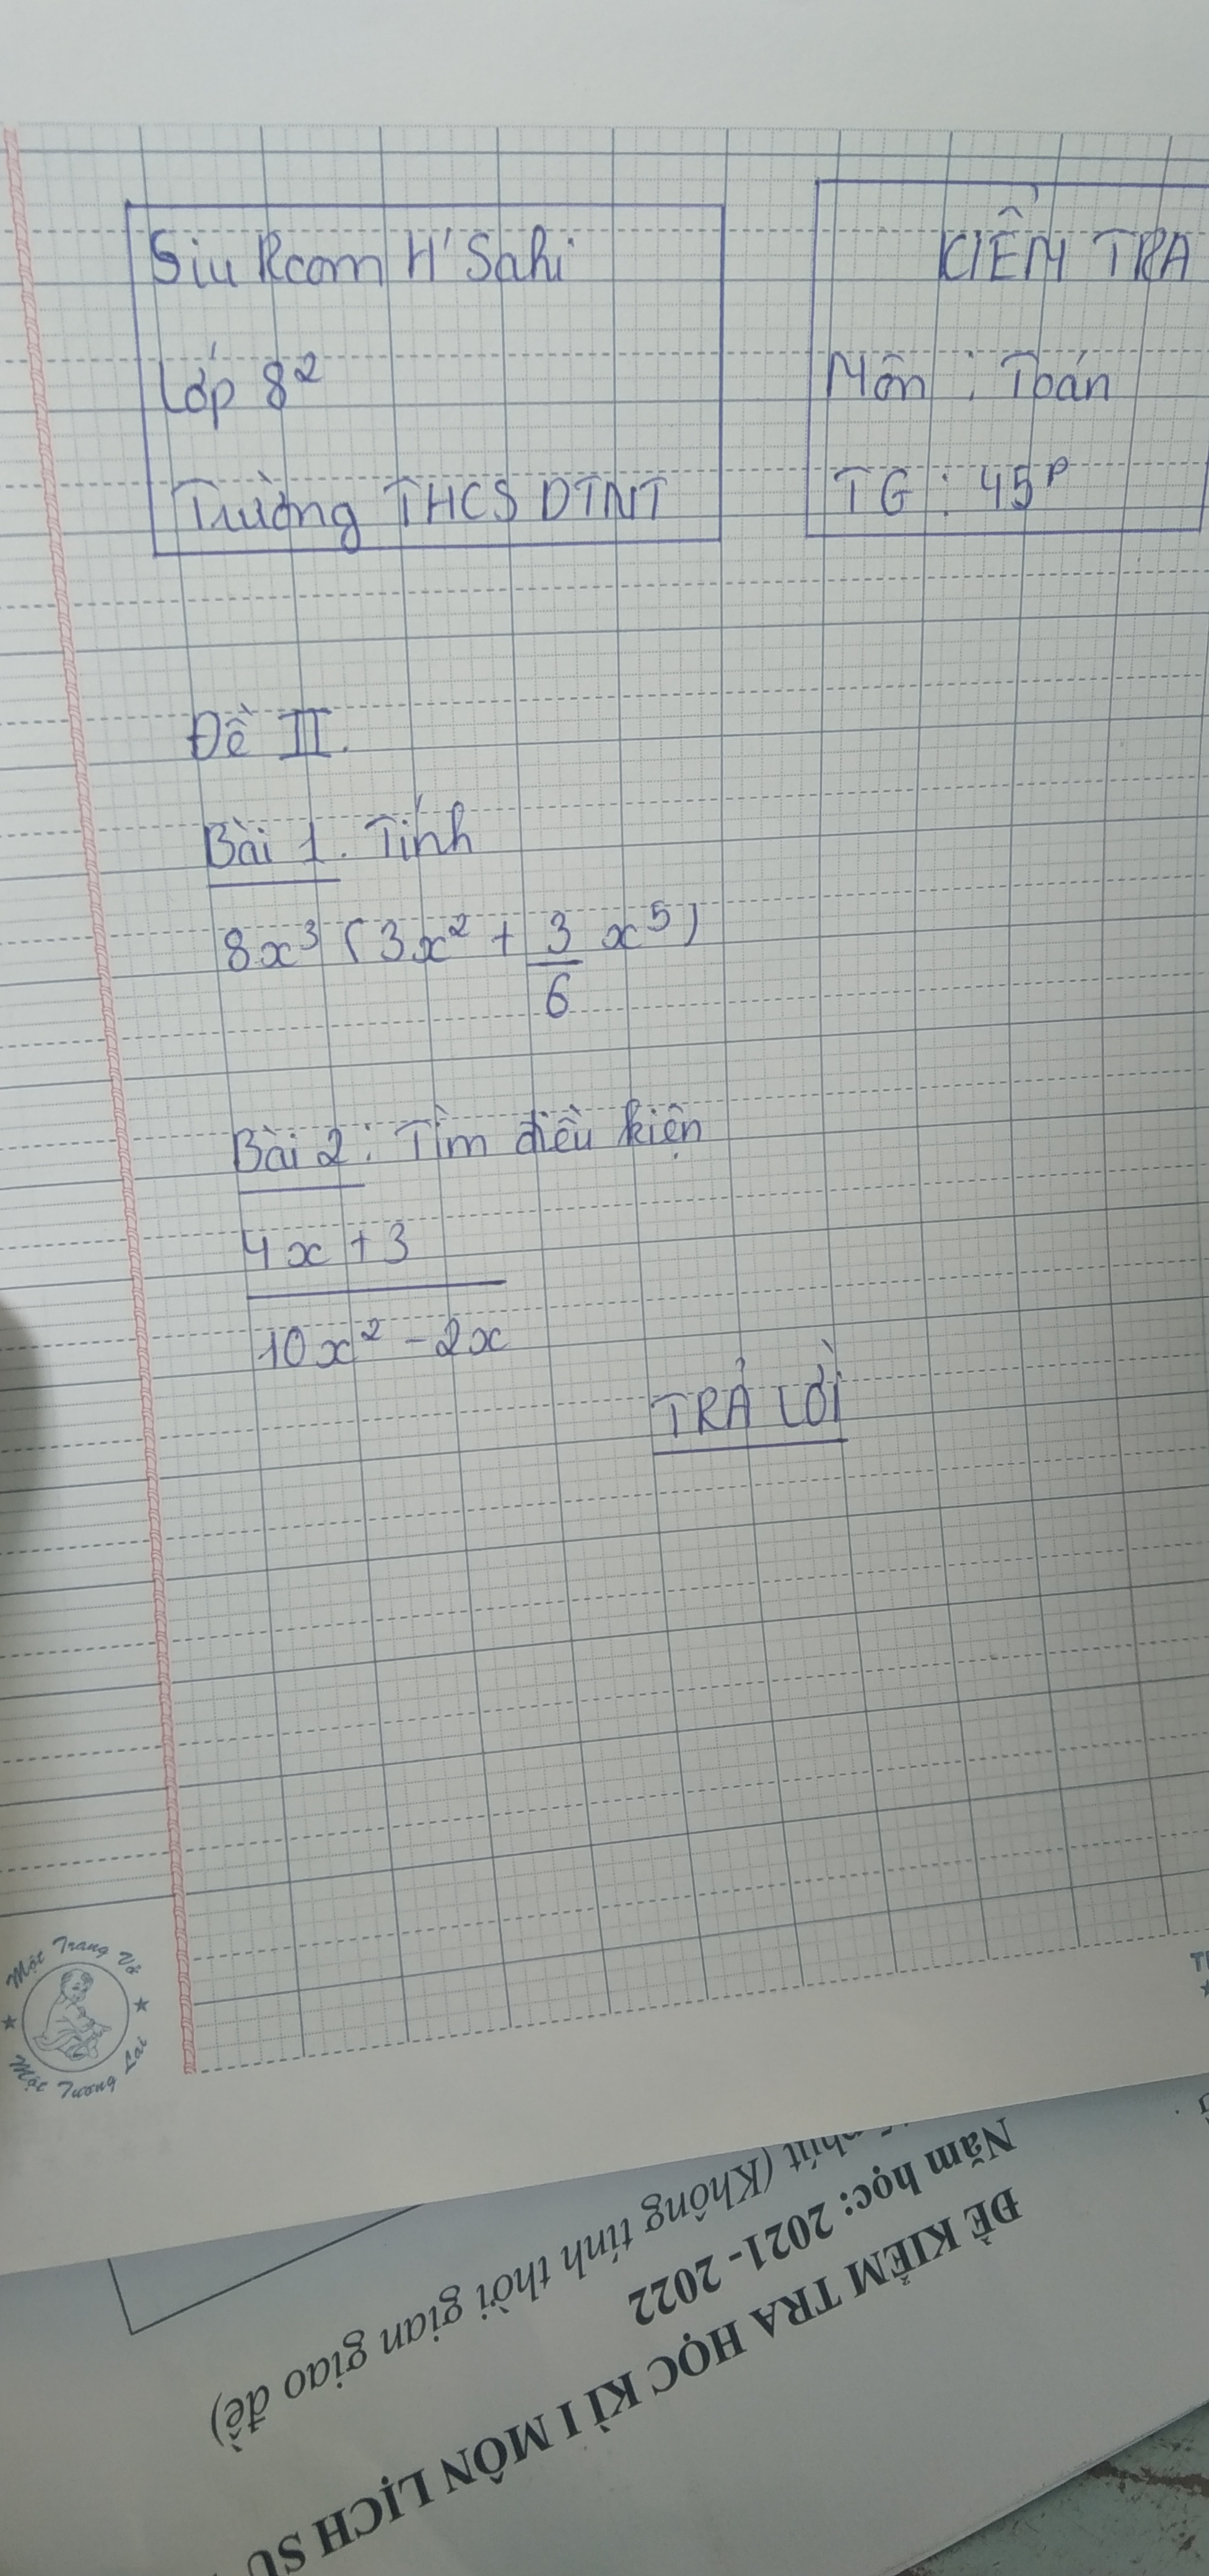 Siu Rcom H' Sahi
Lớp 8²
Trường THCS DTNT
KIỂM TRA
Môn : Toán
TG : 45P
Đề II.
Bài 1. Tính
8x³ (3x² + 3/6 x⁵)
Bài 2: Tìm điều kiện
4x + 3
10x² - 2x
TRẢ LỜI
Một Trang Vở
Một Tương Lai
ĐỀ KIỂM TRA HỌC KÌ I MÔN LỊCH SỬ
Năm học: 2021- 2022
phút (Không tính thời gian giao đề)